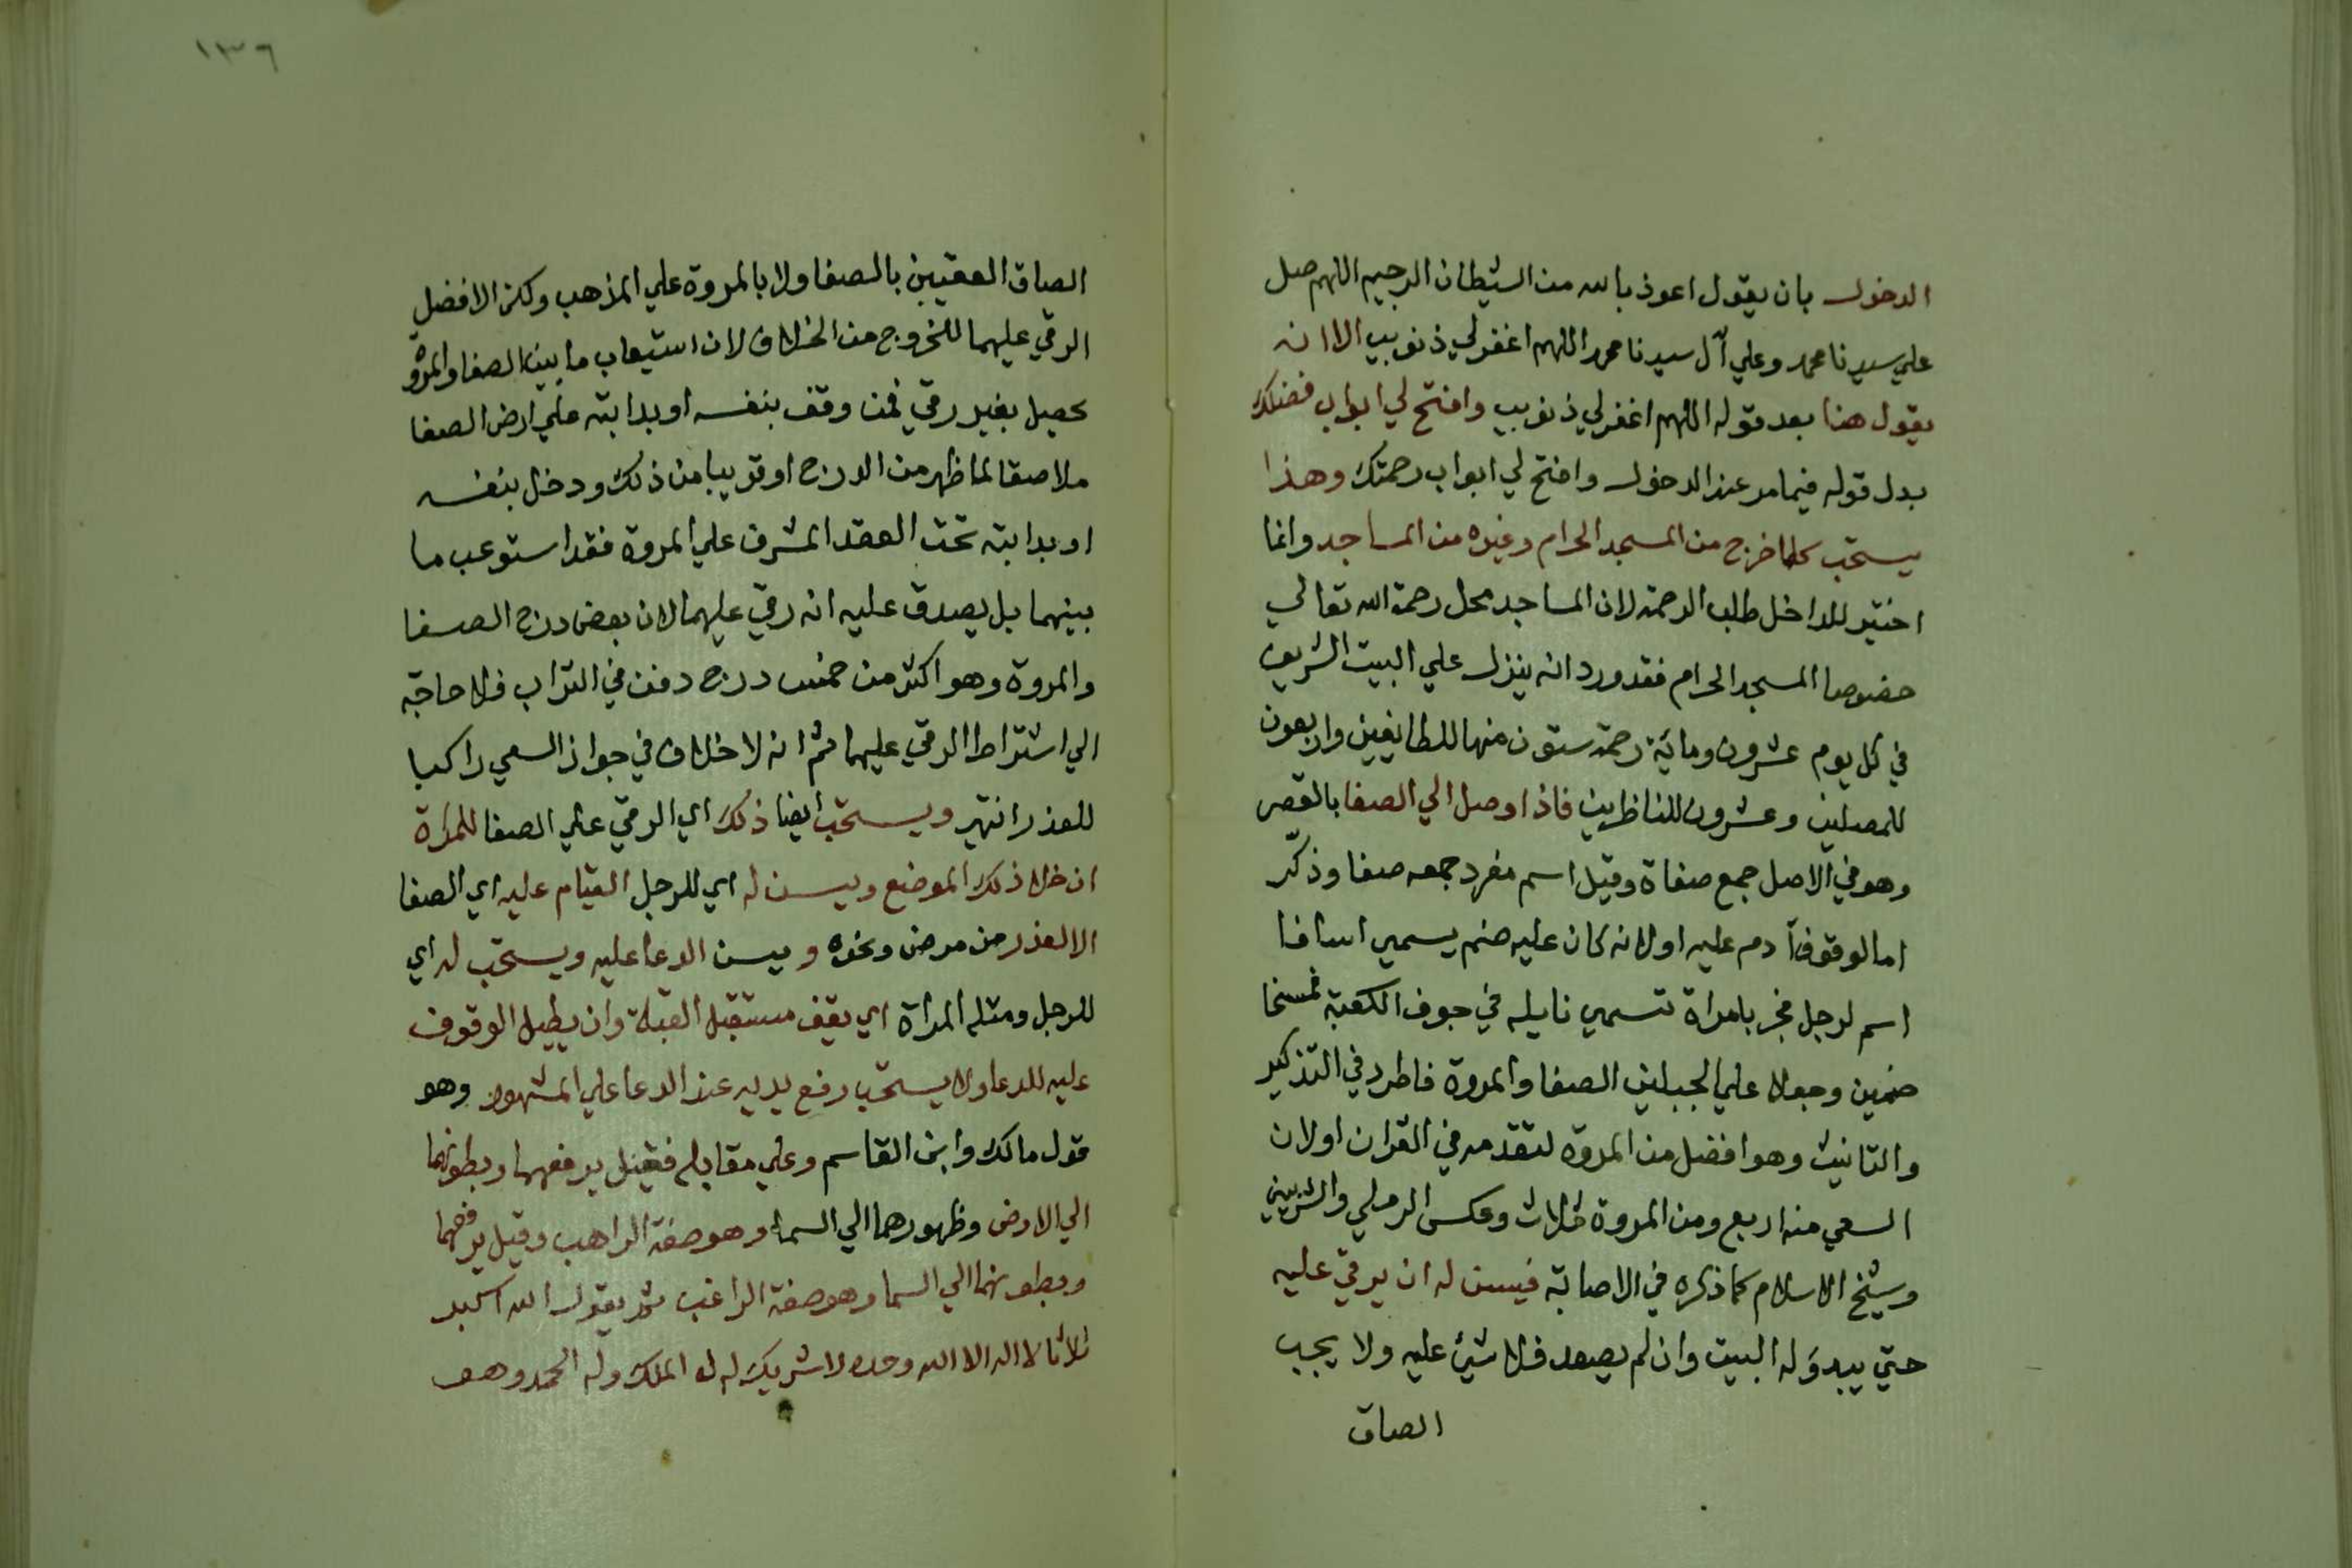 الدخول بان يقول اعوذ بالله من الشيطان الرجيم اللهم صل
علي سيدنا محمد وعلي آل سيدنا محمد اللهم اغفر لي ذنوبي الا انه
يقول هنا بعد قوله اللهم اغفر لي ذنوبي وافتح لي ابواب فضلك
بدل قوله فيما مر عند الدخول وافتح لي ابواب رحمتك وهذا
يستحب كلما خرج من المسجد الحرام وغيره من المساجد وانما
اختير للداخل طلب الرحمة لان المساجد محل رحمة الله تعالي
خصوصا المسجد الحرام فقد ورد انه ينزل علي البيت الشريف
في كل يوم عشرون وماية رحمة ستون منها للطايفين واربعون
للمصلين وعشرون للناظرين فاذا وصل الي الصفا بالقصر
وهو في الاصل جمع صفاة وقيل اسم مفرد جمعه صفا وذكّر
اما لوقوف آدم عليه اولانه كان عليه صنم يسمي اسافا
اسم لرجل فجر بامراة تسمي نايله في جوف الكعبة فمسخا
صنمين وجعلا علي الجبلين الصفا والمروة فاطرد في التذكير
والتانيث وهو افضل من المروة لتقدمه في القران اولان
السعي منه اربع ومن المروة ثلاث وعكس الرملي والشربيني
وشيخ الاسلام كما ذكره في الاصابة فيسن له ان يرقي عليه
حتي يبدوَ له البيت وان لم يصعد فلا شيئ عليه ولا يجب
الصاق
١٣٦
الصاق العقبين بالصفا ولا بالمروة علي المذهب ولكن الافضل
الرقي عليهما للخروج من الخلاف لان استيعاب ما بين الصفا والمروة
يحصل بغير رقي فمن وقف بنفسه او بدابته علي ارض الصفا
ملاصقا لما ظهر من الدرج او قريبا من ذلك ودخل بنفسه
او بدابته تحت العقد المشرف علي المروة فقد استوعب ما
بينهما بل يصدق عليه انه رقي عليهما لان بعض درج الصفا
والمروة وهو اكثر من خمس درج دفن في التراب فلا حاجة
الي اشتراط الرقي عليهما ثم انه لا خلاف في جواز السعي راكبا
للعذر انتهر ويستحب ايضا ذلك اي الرقي علي الصفا للمراة
ان خلا ذلك الموضع ويسن له اي للرجل القيام عليه اي الصفا
الا لعذر من مرض ونحوه ويسن الدعا عليه ويستحب له اي
للرجل ومثله المراة اي يقف مستقبل القبلة وان يطيل الوقوف
عليه للدعا ولا يستحب رفع يديه عند الدعا علي المشهور وهو
قول مالك وابن القاسم وعلي مقابله فقيل يرفعهما وبطونهما
الي الارض وظهورهما الي السماء وهو صفة الراهب وقيل يرفعهما
وبطونهما الي السما وهو صفة الراغب ثم يقول الله اكبر
ثلاثا لا اله الا الله وحده لا شريك له له الملك وله الحمد وهو